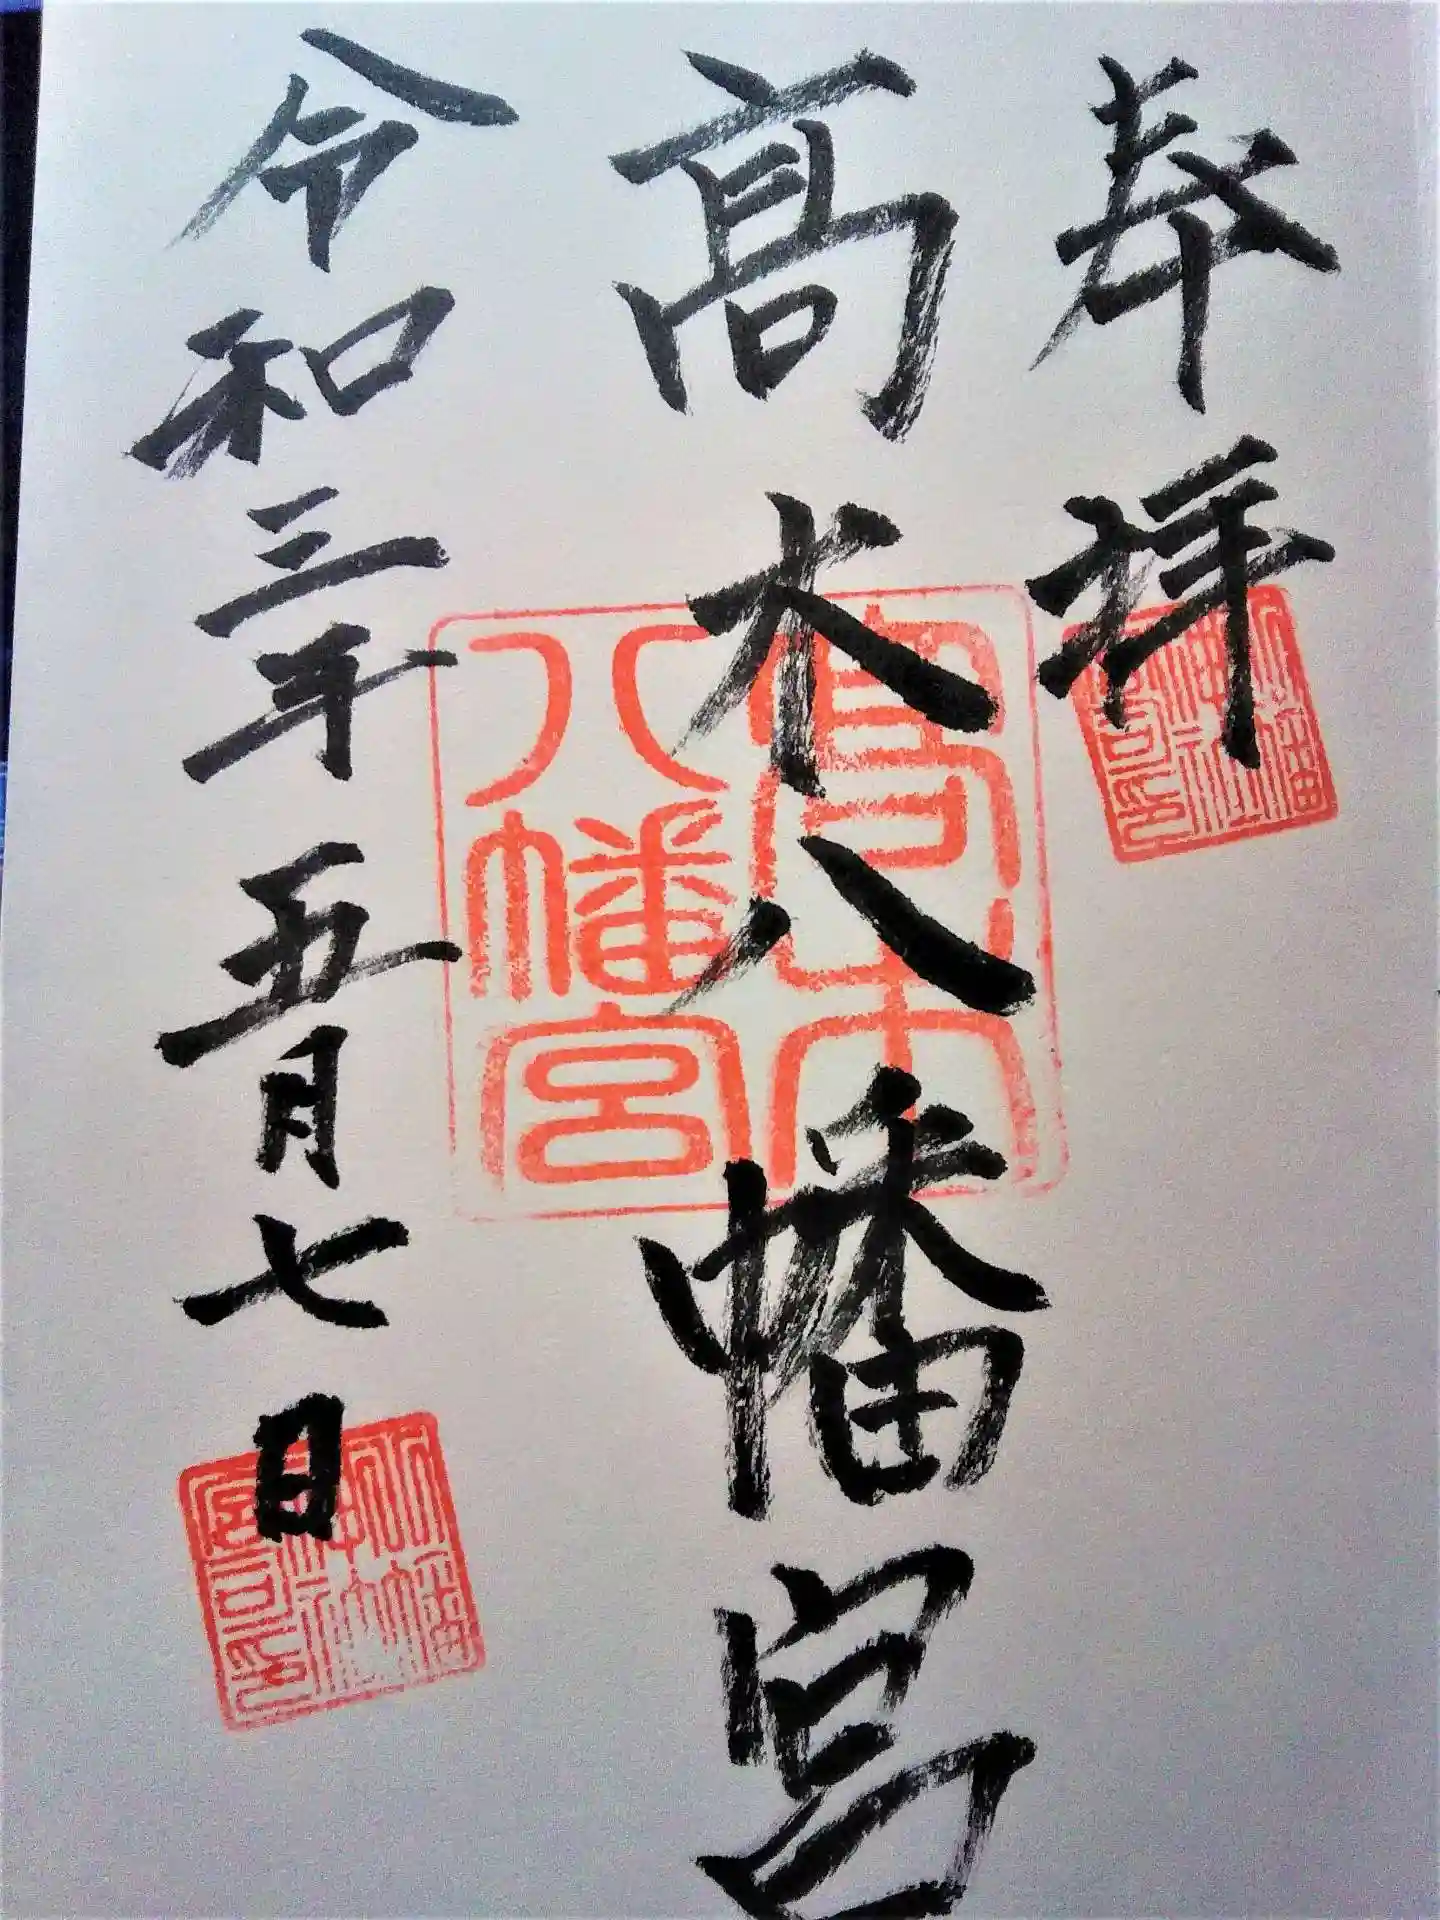 奉拝
髙木八幡宮
令和三年五月七日
髙木
八幡宮